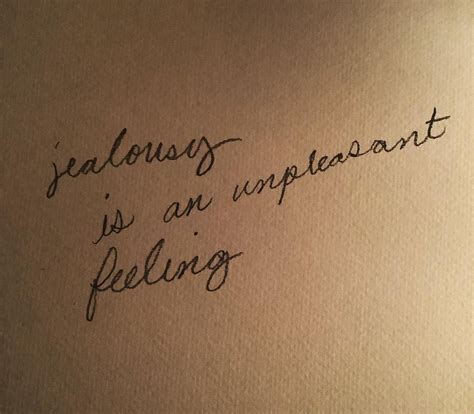 jealousy
is an unpleasant
feeling